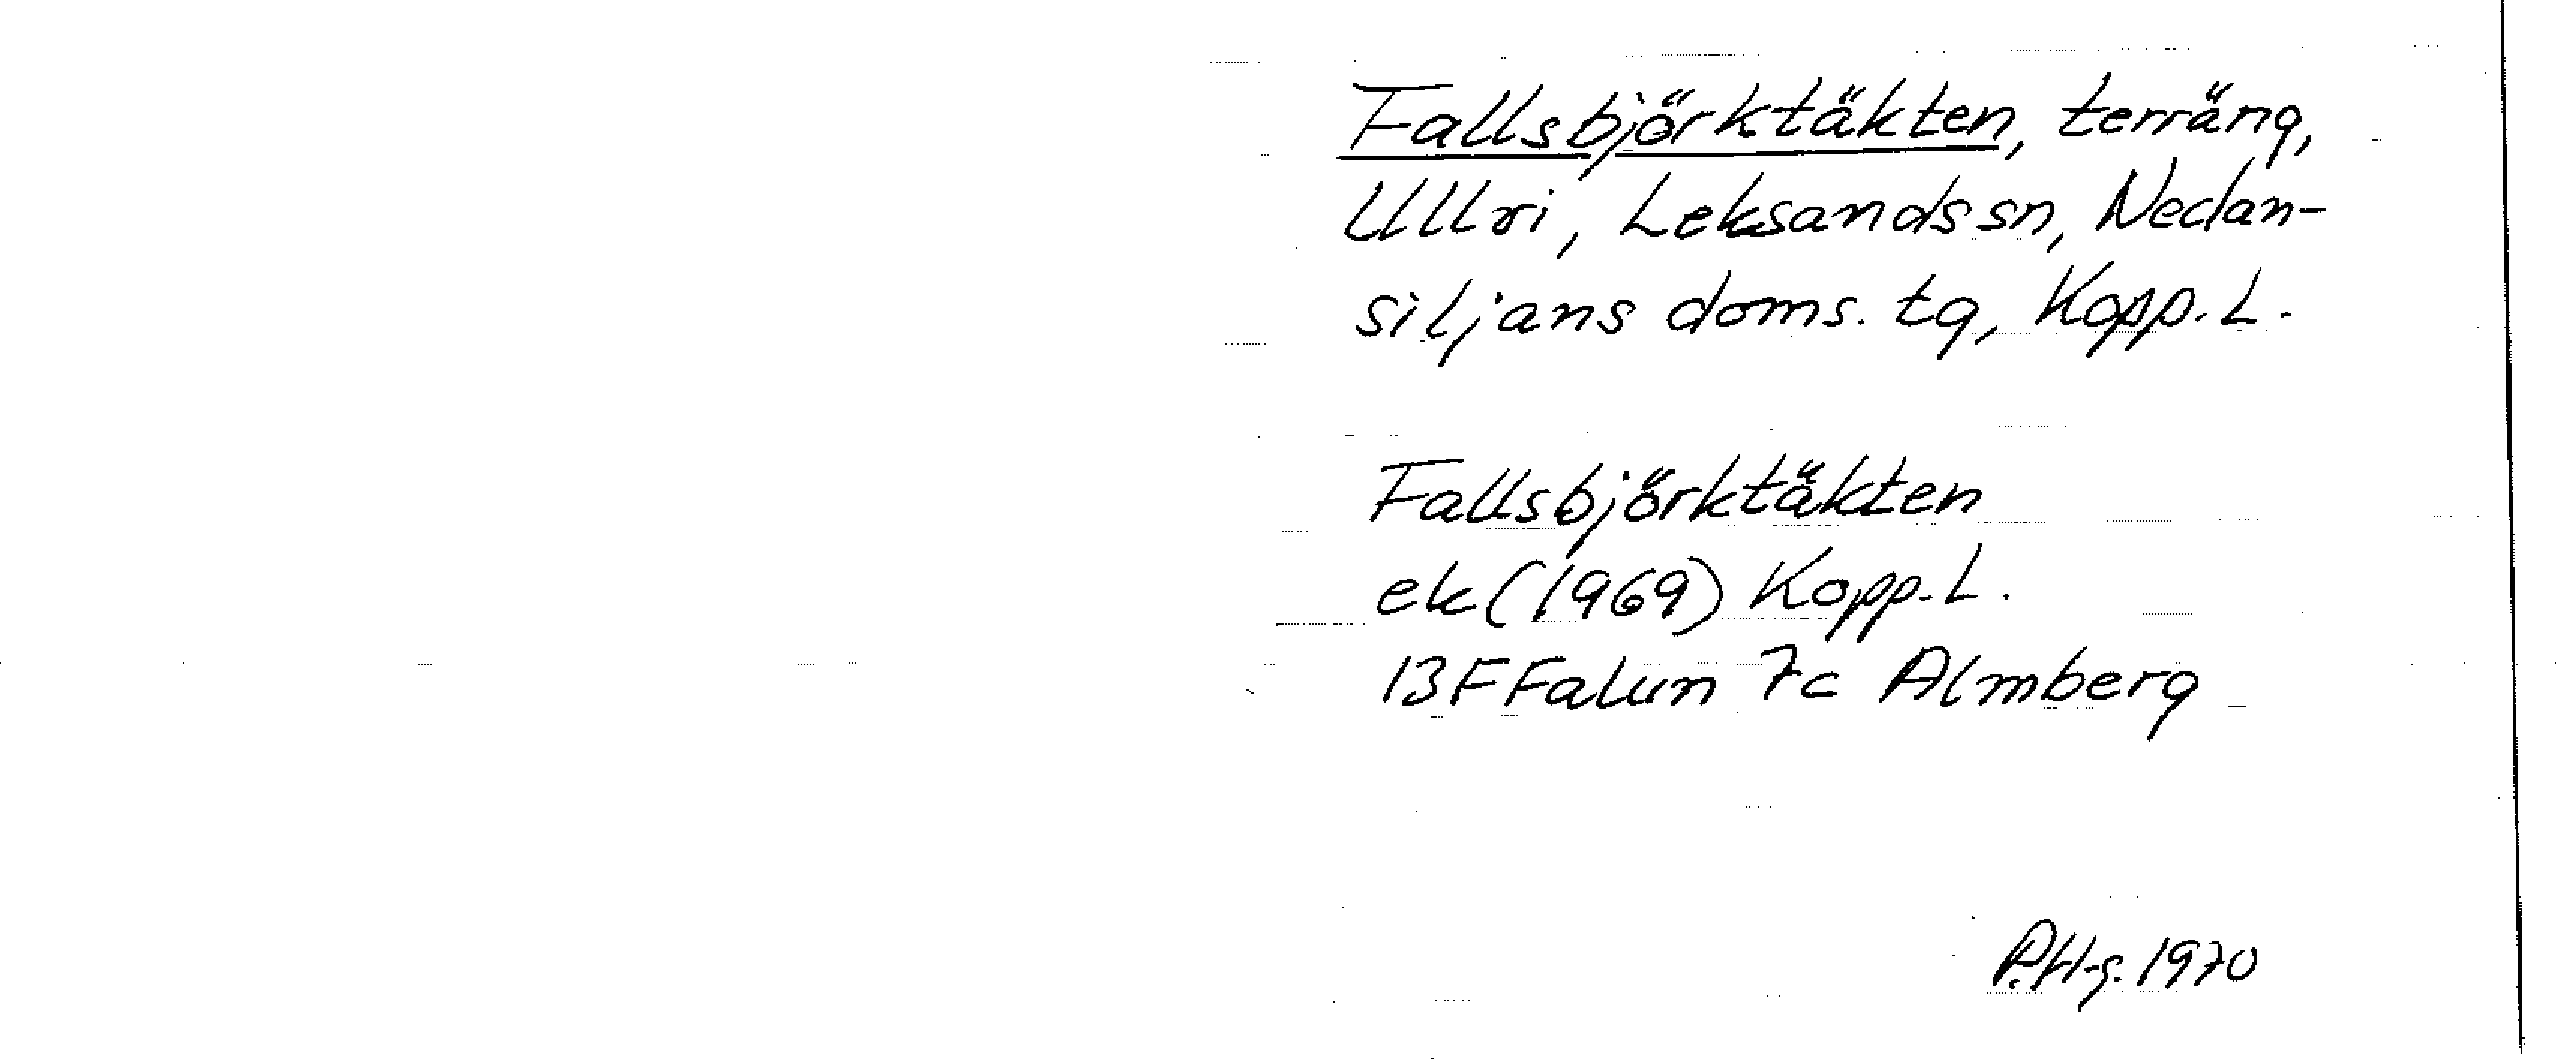 Fallsbjörktäkten, terräng,
Ullvi, Leksands sn, Nedan-
siljans doms. tg, Kopp. L.
Fallsbjörktäkten
ek (1969) Kopp. L.
13F Falun 7c Almberg
P.H-g. 1970